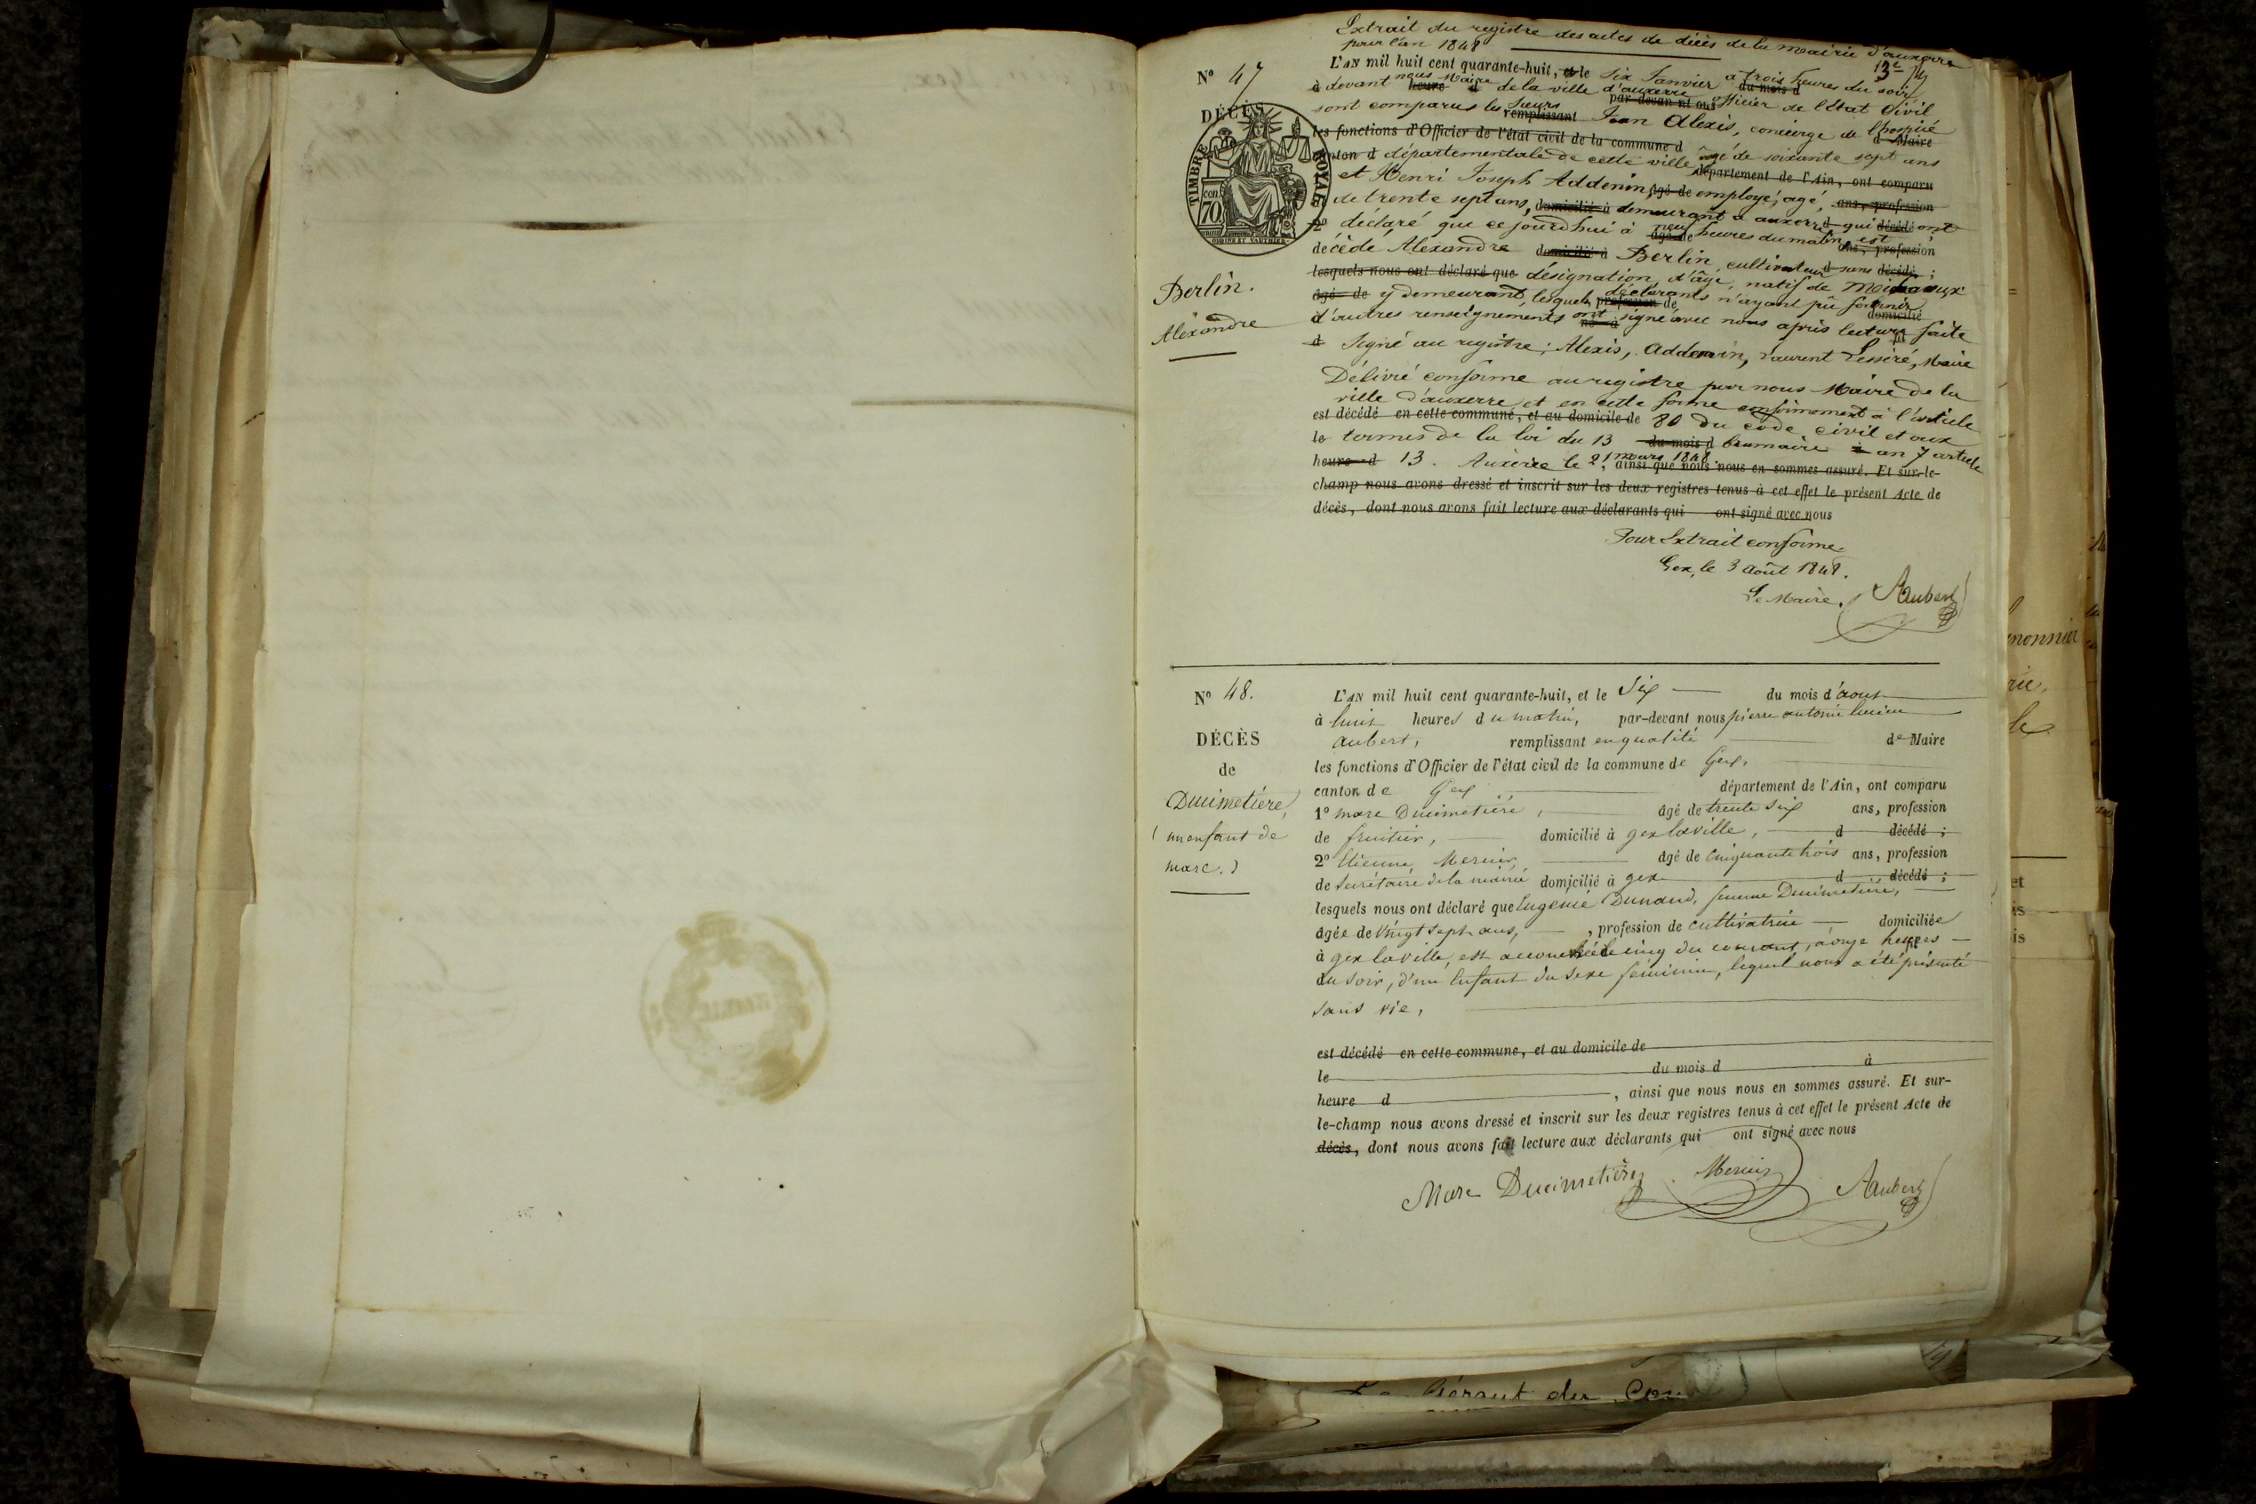 Extrait du registre des actes de décès de la mairie d'auxerre
pour l'an 1848
13e
N° 47
DÉCÈS
de
TIMBRE ROYALE
70
Berlin.
Alexandre
L'AN mil huit cent quarante-huit, et le Six Janvier à trois heures du soir
à devant nous Maire de la ville d'auxerre officier de l'état Civil
sont comparus les Sieurs Jean Alexis, concierge de l'hospice
départementale de cette ville âgé de soixante sept ans
et Henri Joseph Addenin, employé, agé,
de trente sept ans, demeurant à auxerre qui ont
2° déclaré que ce jourd'hui à neuf heures du matin, est
décédé Alexandre Berlin, cultivateur sans
désignation d'âge, natif de
y demeurant, lesquels déclarants n'ayant pû fournir
d'autres renseignements ont signé avec nous après lecture faite
Signé au registre; Alexis, Addenin, Laurent Lesseré, Maire
Délivré conforme au registre par nous Maire de la
ville d'auxerre et en cette forme conformément à l'article
est décédé en cette commune, et au domicile de 80 du code civil et aux
le termes de la loi du 13 du mois d brumaire an 7 article
heure d 13. Auxerre le 21 mars 1848. ainsi que nous nous en sommes assuré. Et sur-le-
champ nous avons dressé et inscrit sur les deux registres tenus à cet effet le présent Acte de
décès, dont nous avons fait lecture aux déclarants qui ont signé avec nous
Pour Extrait conforme.
Gex, le 3 août 1848.
Le Maire. Aubert
N° 48.
DÉCÈS
de
Ducimetière,
(un enfant de
marc.)
L'AN mil huit cent quarante-huit, et le Six du mois d'aout
à huit heures du matin, par-devant nous pierre antoine lucien
aubert, remplissant en qualité de Maire
les fonctions d'Officier de l'état civil de la commune de Gex,
canton de Gex département de l'Ain, ont comparu
1° marc Ducimetière, âgé de trente six ans, profession
de fruitier, domicilié à gex la ville, d décédé;
2° Etienne Mercier, âgé de cinquante trois ans, profession
de secrétaire de la mairie domicilié à gex d décédé;
lesquels nous ont déclaré que Eugénie Dunand, femme Ducimetière,
âgée de vingt sept ans, , profession de cultivatrice domiciliée
à gex la ville, est accouchée le cinq du courant, à onze heures
du soir, d'un Enfant du sexe féminin, lequel nous a été présenté
sans vie,
est décédé en cette commune, et au domicile de
le du mois d à
heure d , ainsi que nous nous en sommes assuré. Et sur-
le-champ nous avons dressé et inscrit sur les deux registres tenus à cet effet le présent Acte de
décès, dont nous avons fait lecture aux déclarants qui ont signé avec nous
Marc Ducimetière Mercier Aubert